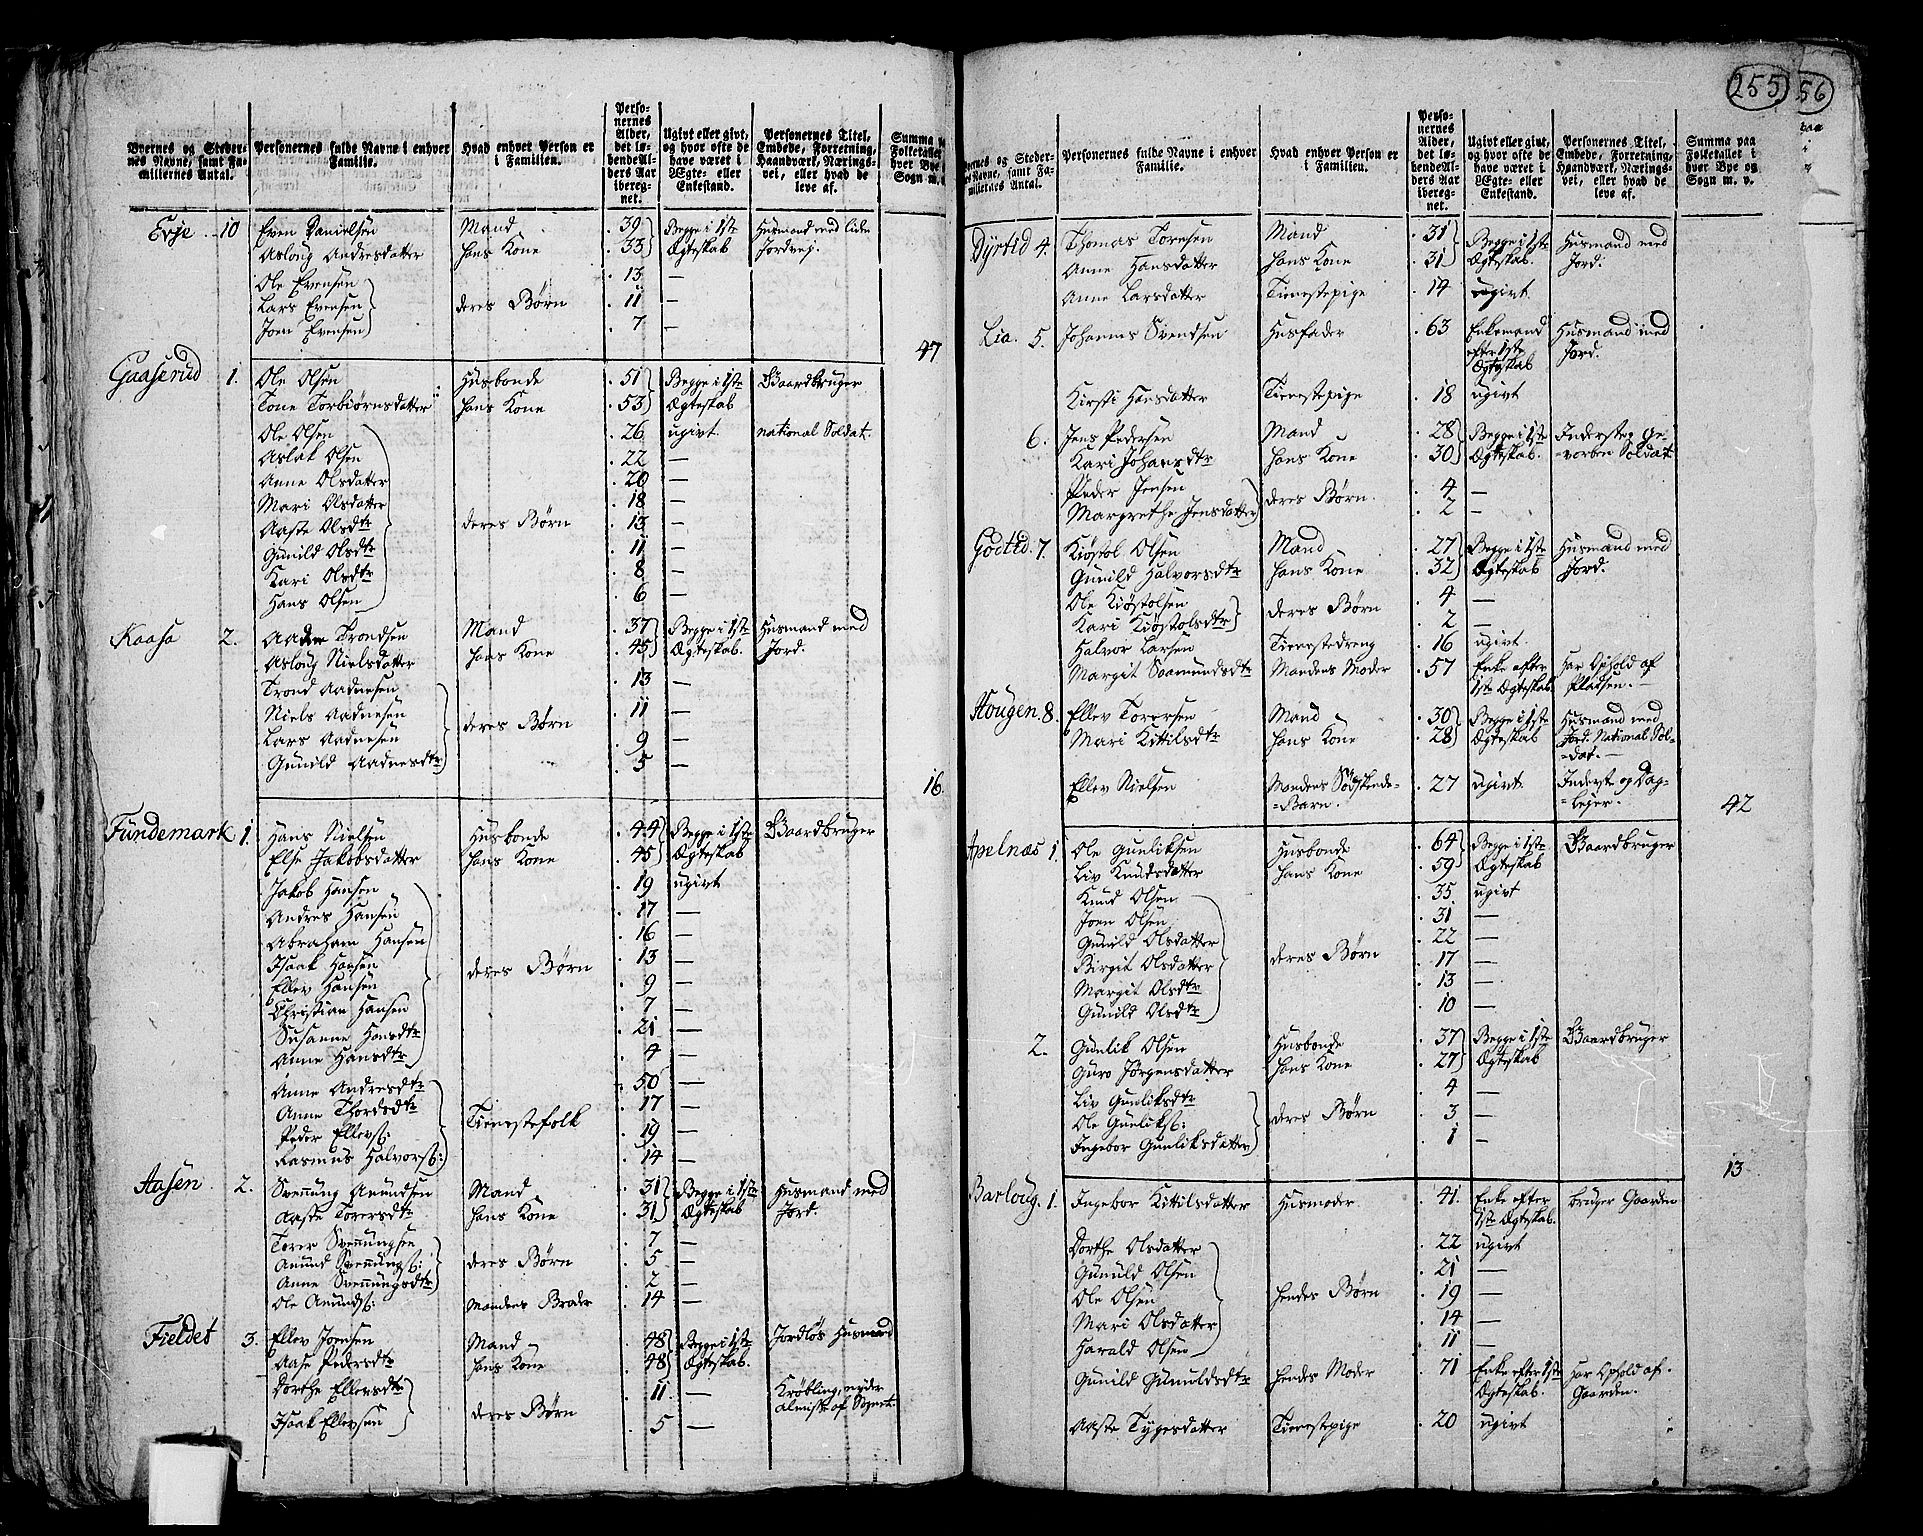 255
56
Byernes og Stedernes Navne, samt Familiernes Antal.
Personernes fulde Navne i enhver Familie.
Hvad enhver Person er i Familien.
Personernes Alder, det løbende Alders Aar iberegnet.
Ugivt eller givt, og hvor ofte de have været i Ægte- eller Enkestand.
Personernes Titel, Embede, Forretning, Haandværk, Næringsvei, eller hvad de leve af.
Summa paa Folketallet i hver Bye og Sogn m. v.
Evje 10 Even Danielsen Mand 39 Begge i 1ste Husmand med liden
Aslong Andresdatter hans Kone 33 Ægteskab Jordvej.
Ole Evensen 13 —
Lars Evensen deres Børn 11 —
Joen Evensen 7 —
47
Gaaserud 1. Ole Olsen Husbonde 51 Begge i 1ste Gaardbruger
Tone Torbiørnsdatter hans Kone 53 Ægteskab
Ole Olsen 26 ugivt national Soldat.
Aslak Olsen 22 —
Anne Olsdatter 20 —
Mari Olsdatter 18 —
Aaste Olsdtr deres Børn 13 —
Gunild Olsdtr 11 —
Kari Olsdtr 8 —
Hans Olsen 6 —
Kaasa 2. Aadne Trondsen Mand 37 Begge i 1ste Husmand med
Asloug Nielsdatter hans Kone 45 Ægteskab. Jord.
Trond Aadnesen 13 —
Niels Aadnesen deres Børn 11 —
Lars Aadnesen 9 —
Gunild Aadnesdtr 5 —
16.
Fundemark 1. Hans Nielsen Husbonde 44 Begge i 1ste Gaardbruger
Else Jakobsdatter hans Kone 45 Ægteskab
Jakob Hansen 19 ugivt
Andres Hansen 17 —
Abraham Hansen 16 —
Isaak Hansen deres Børn 13 —
Ellev Hansen 9 —
Christian Hansen 7 —
Susanne Hansdtr 21 —
Anne Hansdtr 4 —
Anne Andresdtr 50 —
Anne Thordsdtr Tienestefolk 17 —
Peder Ellevs: 19 —
Rasmus Halvors: 14 —
Aasen 2. Svennung Anundsen Mand 31 Begge i 1ste Husmand med
Aaste Torersdtr hans Kone 31 Ægteskab Jord.
Torer Svennungsen 7 —
Anund Svennungs: deres Børn 5 —
Anne Svennungsdtr 2 —
Ole Anunds: Mandens Broder 14 —
Fieldet 3. Ellev Joensen Mand 48 Begge i 1ste Jordløs Husmand
Aase Pedersdtr hans Kone 48 Ægteskab.
Dorthe Ellevsdtr deres Børn 11 — Krøbling, nyder almisse af Sognet.
Isaak Ellevsen 5 —
Byernes og Stedernes Navne, samt Familiernes Antal.
Personernes fulde Navne i enhver Familie.
Hvad enhver Person er i Familien.
Personernes Alder, det løbende Alders Aar iberegnet.
Ugivt eller givt, og hvor ofte de have været i Ægte- eller Enkestand.
Personernes Titel, Embede, Forretning, Haandværk, Næringsvei, eller hvad de leve af.
Summa paa Folketallet i hver Bye og Sogn m. v.
Dyrtid 4. Thomas Toresen Mand 31 Begge i 1ste Husmand med
Anne Hansdatter hans Kone 31 Ægteskab. Jord.
Anne Larsdatter Tienestepige 14 ugivt
Lia. 5. Johannes Svendsen Husfader 63 Enkemand efter 1ste Ægteskab Husmand med Jord.
Kirsti Hansdatter Tienestepige 18 ugivt
6. Jens Pedersen Mand 28 Begge i 1ste Inderste og ge-
Kari Johansdtr hans Kone 30 Ægteskab. -vorben Soldat.
Peder Jensen deres Børn. 4 —
Margrethe Jensdatter 2 —
Godtid. 7. Kiøstol Olsen Mand 27 Begge i 1ste Husmand med
Gunild Halvorsdtr hans Kone 32 Ægteskab Jord.
Ole Kiøstolsen deres Børn 4 —
Kari Kiøstolsdtr 2 —
Halvor Larsen Tienestedreng 16 ugivt.
Margit Svamundsdtr Mandens Moder 57 Enke efter 1ste Ægteskab. har Ophold af Pladsen. —
Hougen. 8. Ellev Torersen Mand 30 Begge i 1ste Husmand med
Mari Kittilsdtr hans Kone 28 Ægteskab Jord. National Sol-
-dat. —
Ellev Nielsen Mandens Sødskende-Barn. 27 ugivt Inderst og Dag-leyer.
42
Apelnæs 1. Ole Gunliksen Husbonde 64 Begge i 1ste Gaardbruger
Liv Knudsdatter hans Kone 59 Ægteskab
Knud Olsen 35 ugivt
Joen Olsen 31 —
Gunild Olsdatter 22 —
Birgit Olsdatter deres Børn 17 —
Margit Olsdtr 13 —
Gunild Olsdtr 10 —
2. Gunlik Olsen Husbonde 37 Begge i 1ste Gaardbruger
Guro Jørgensdatter hans Kone 27 Ægteskab
Liv Gunliksdtr 4 —
Ole Gunliks: deres Børn 3 —
Ingebor Gunliksdatter 1 —
13
Barloug. 1. Ingebor Kittilsdatter Husmoder 41. Enke efter 1ste Ægteskab. bruger Gaarden
Dorthe Olsdatter 22 ugivt
Gunuld Olsen 21 —
Ole Olsen hendes Børn 19 —
Mari Olsdatter 14 —
Harald Olsen 11 —
Gunild Gunuldsdtr hendes Moder 71 Enke efter 1ste Ægteskab. har Ophold af Gaarden.
Aaste Tygesdatter Tienestepige 20 ugivt